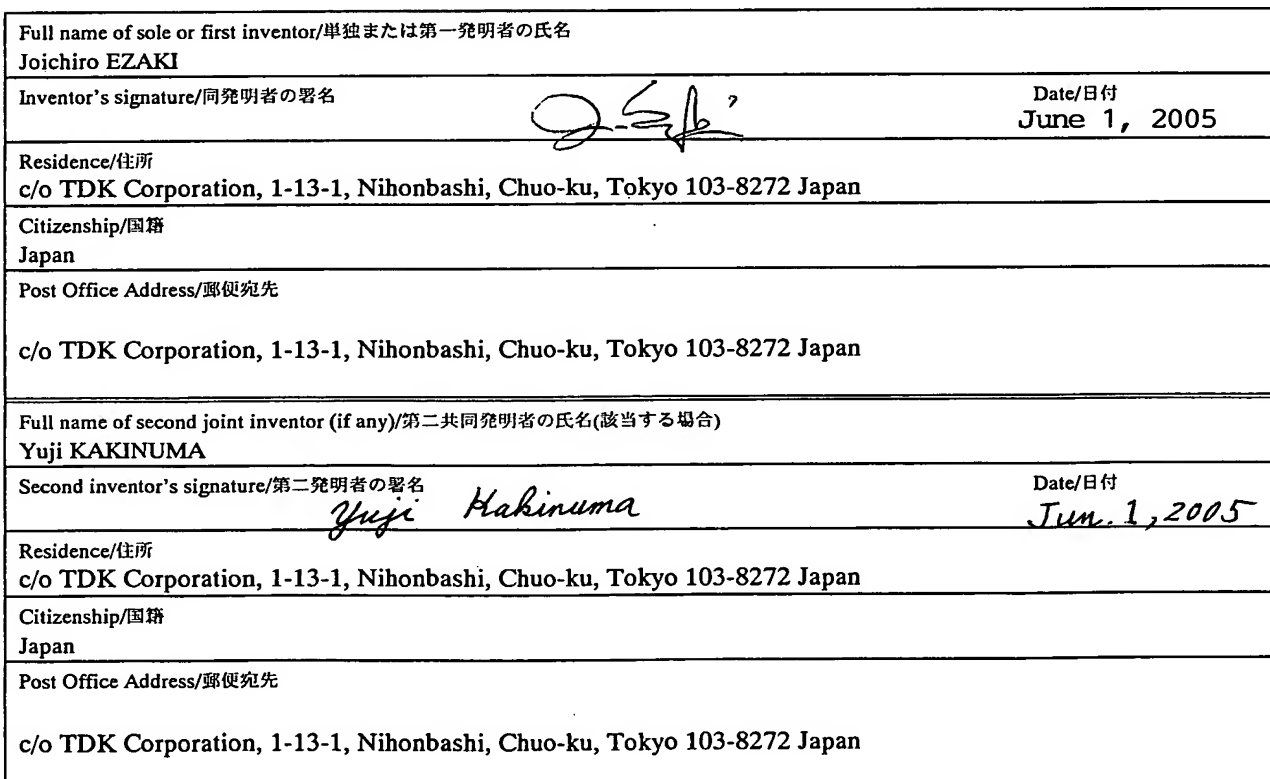 Full name of sole or first inventor/単独または第一発明者の氏名
Joichiro EZAKI
Inventor's signature/同発明者の署名
Date/日付
June 1, 2005
Residence/住所
c/o TDK Corporation, 1-13-1, Nihonbashi, Chuo-ku, Tokyo 103-8272 Japan
Citizenship/国籍
Japan
Post Office Address/郵便宛先
c/o TDK Corporation, 1-13-1, Nihonbashi, Chuo-ku, Tokyo 103-8272 Japan
Full name of second joint inventor (if any)/第二共同発明者の氏名(該当する場合)
Yuji KAKINUMA
Second inventor's signature/第二発明者の署名
Yuji Kakinuma
Date/日付
Jun. 1, 2005
Residence/住所
c/o TDK Corporation, 1-13-1, Nihonbashi, Chuo-ku, Tokyo 103-8272 Japan
Citizenship/国籍
Japan
Post Office Address/郵便宛先
c/o TDK Corporation, 1-13-1, Nihonbashi, Chuo-ku, Tokyo 103-8272 Japan